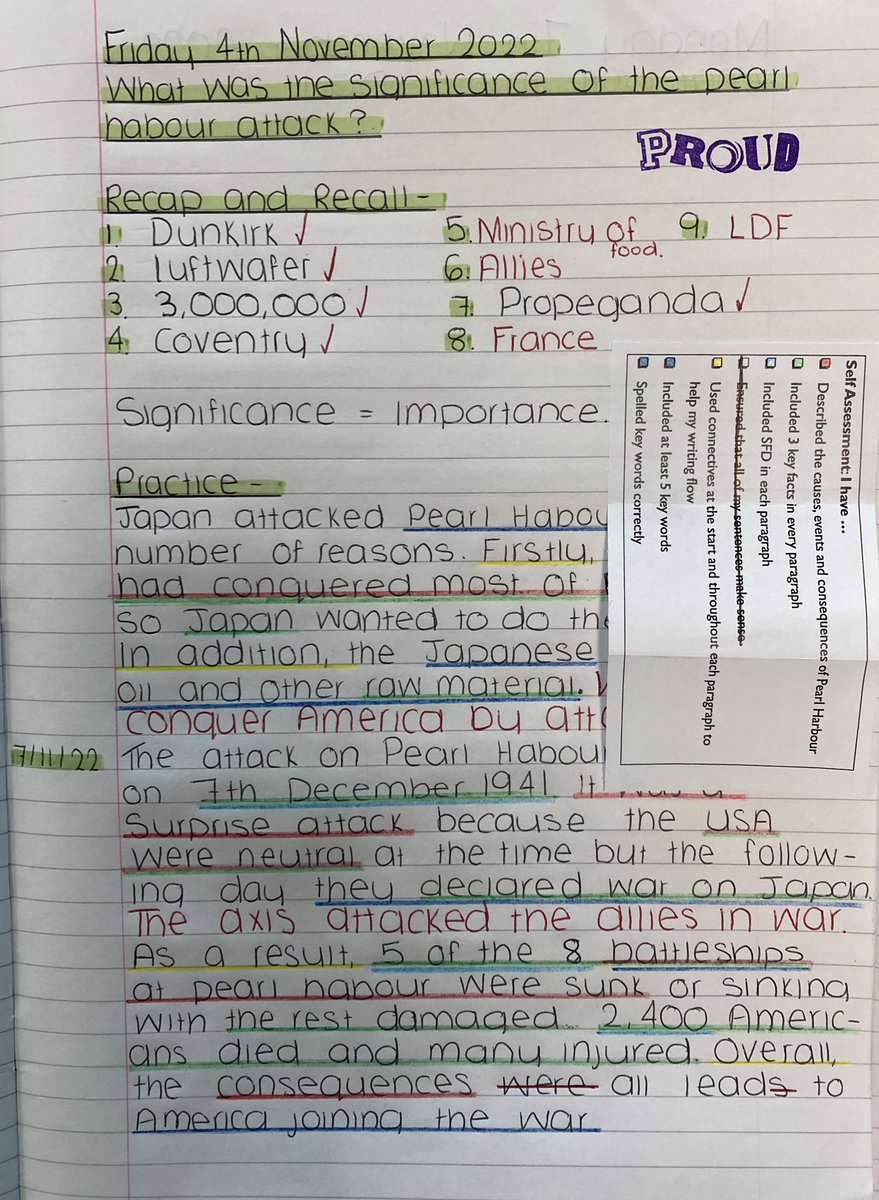 Friday 4th November 2022
What was the significance of the pearl
habour attack?
PROUD
Recap and Recall-
1. Dunkirk ✓
2. luftwafer ✓
3. 3,000,000 ✓
4. Coventry ✓
5. Ministry of
food.
6. Allies
7. Propeganda ✓
8. France
9. LDF
Significance = Importance.
Practice -
Japan attacked Pearl Habou
number of reasons. Firstly,
had conquered most of
so Japan wanted to do the
In addition, the Japanese
oil and other raw material.
conquer America by att
7/11/22
The attack on Pearl Habou
on 7th December 1941. It
Surprise attack because the USA
were neutral at the time but the follow-
ing day they declared war on Japan.
The axis attacked the allies in war.
As a result, 5 of the 8 battleships
at pearl habour were sunk or sinking
with the rest damaged. 2,400 Americ-
ans died and many injured. Overall,
the consequences were all leads to
America joining the war.
Self Assessment: I have ...
Described the causes, events and consequences of Pearl Harbour
Included 3 key facts in every paragraph
Included SFD in each paragraph
Ensured that all of my sentences make sense
Used connectives at the start and throughout each paragraph to
help my writing flow
Included at least 5 key words
Spelled key words correctly